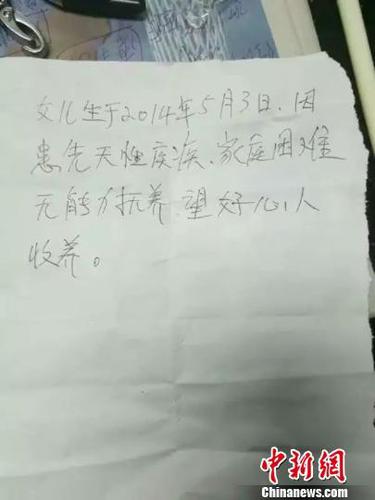 女儿生于2014年5月3日、因
患先天性疾疾、家庭困难
无能力抚养.望好心人
收养。
中新网
Chinanews.com